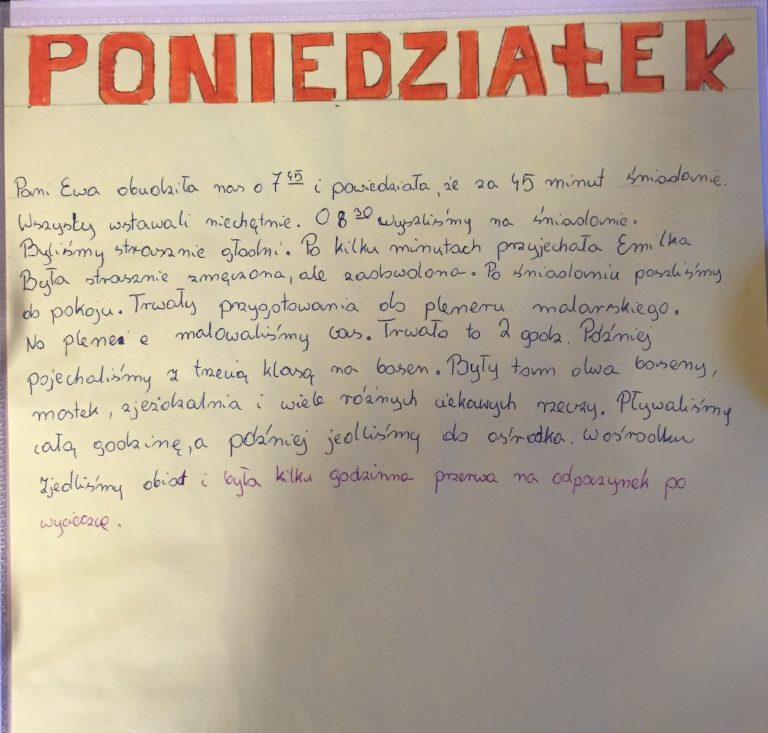 PONIEDZIAŁEK
Pani Ewa obudziła nas o 7 45 i powiedziała, że za 45 minut śniadanie.
Wszyscy wstawali niechętnie. O 8 30 wyszliśmy na śniadanie.
Byliśmy strasznie głodni. Po kilku minutach przyjechała Emilka
Była strasznie zmęczona, ale zadowolona. Po śniadaniu poszliśmy
do pokoju. Trwały przygotowania do pleneru malarskiego.
Na plene e malowaliśmy las. Trwało to 2 godz. Później
pojechaliśmy z trzecią klasą na basen. Były tam dwa baseny,
mostek, zjeżdżalnia i wiele różnych ciekawych rzeczy. Pływaliśmy
całą godzinę, a później jedliśmy do ośrodka. W ośrodku
zjedliśmy obiat i była kilku godzinna przerwa na odpoczynek po
wycieczce.